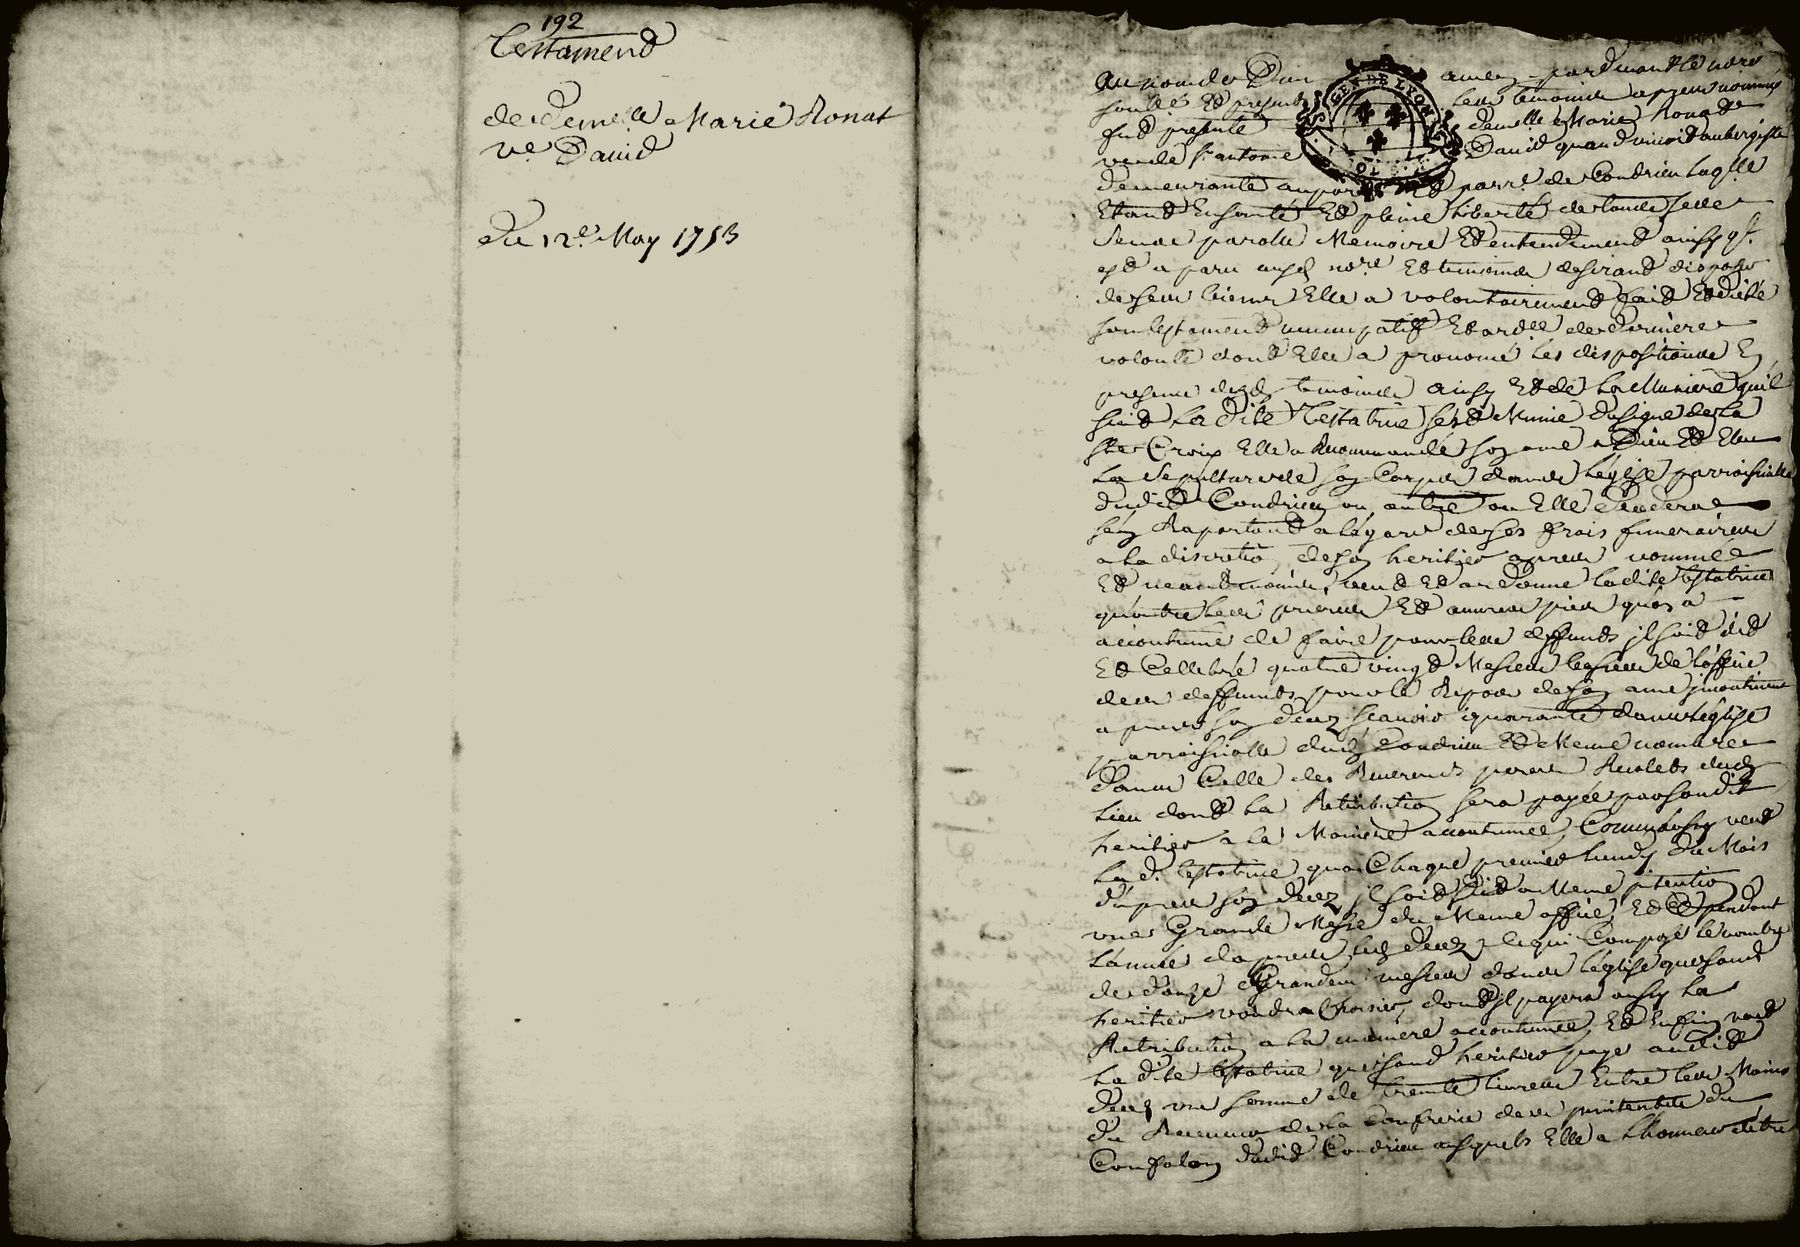 192
Testamend
de Demelle Marie Ronat
ve David
du 12e May 1753
GEN DE LYON
Au nom de Dieu amen pardevant le nore
soussé Et présents les temoins apres nommés
fut presente Demelle Marie Ronat
veuve sr antoine David quand vivoit aubergiste
demeurante au port Et parre de Condrieu laqlle
Etand En santé Et pleine liberté de toutes ses
sens parolle Memoire Et entendement ainsy qe
est a paru auxd nore Et temoins desirant disposer
de ses biens Elle a volontairement fait Et dicté
son testament nuncupatif Et ordce de derniere
volonté dont Elle a prononcé les dispositions En
presence desd temoins ainsy Et de la Maniere quil
suit la dite Testatrice s'est Munie du signe de la
ste Croix Elle a Recommandé son ame a Dieu Et Elu
la sepulture de son Corps dans l'eglise parroissialle
dudit Condrieu ou autre ou Elle decedera
sen Raportant a legard de ses frais funeraires
a la discretion de son heritier apres nommé
Et neantmoins veut Et ordonne ladite testatrice
quoutre les prieres Et œuvres pies quon a
accoutumé de faire pour les deffunts il soit dit
Et Cellebré quatre vingt Messes basses de l'office
des deffunts pour le Repos de son ame incontinent
apres son decez scavoir quarante dans l'eglise
parroissialle dud Condrieu Et Meme nombre
dans Celle des Reverends peres Recolets dud
lieu dont la Retribution sera payée par sondit
heritier a la Maniere accoutumée, Comme aussy veut
la d. testatrice qua Chaque premier lundy du Mois
d'apres son decez il soit dit a Meme intention
une Grande Messe du Meme office Et Ce pendant
l'année d'apres led decez ce qui Compose le nombre
de douze Grandes messes dans l'eglise que sond
heritier voudra Choisir, dont il payera aussy la
Retribution a la maniere accoutumée, Et Enfin veut
la dite testatrice que sond heritier paye audit
decez une somme de trente livres Entre les Mains
du Receveur de la Confrerie des penitents du
Confalon dudit Condrieu auxquels Elle a l'honneur detre